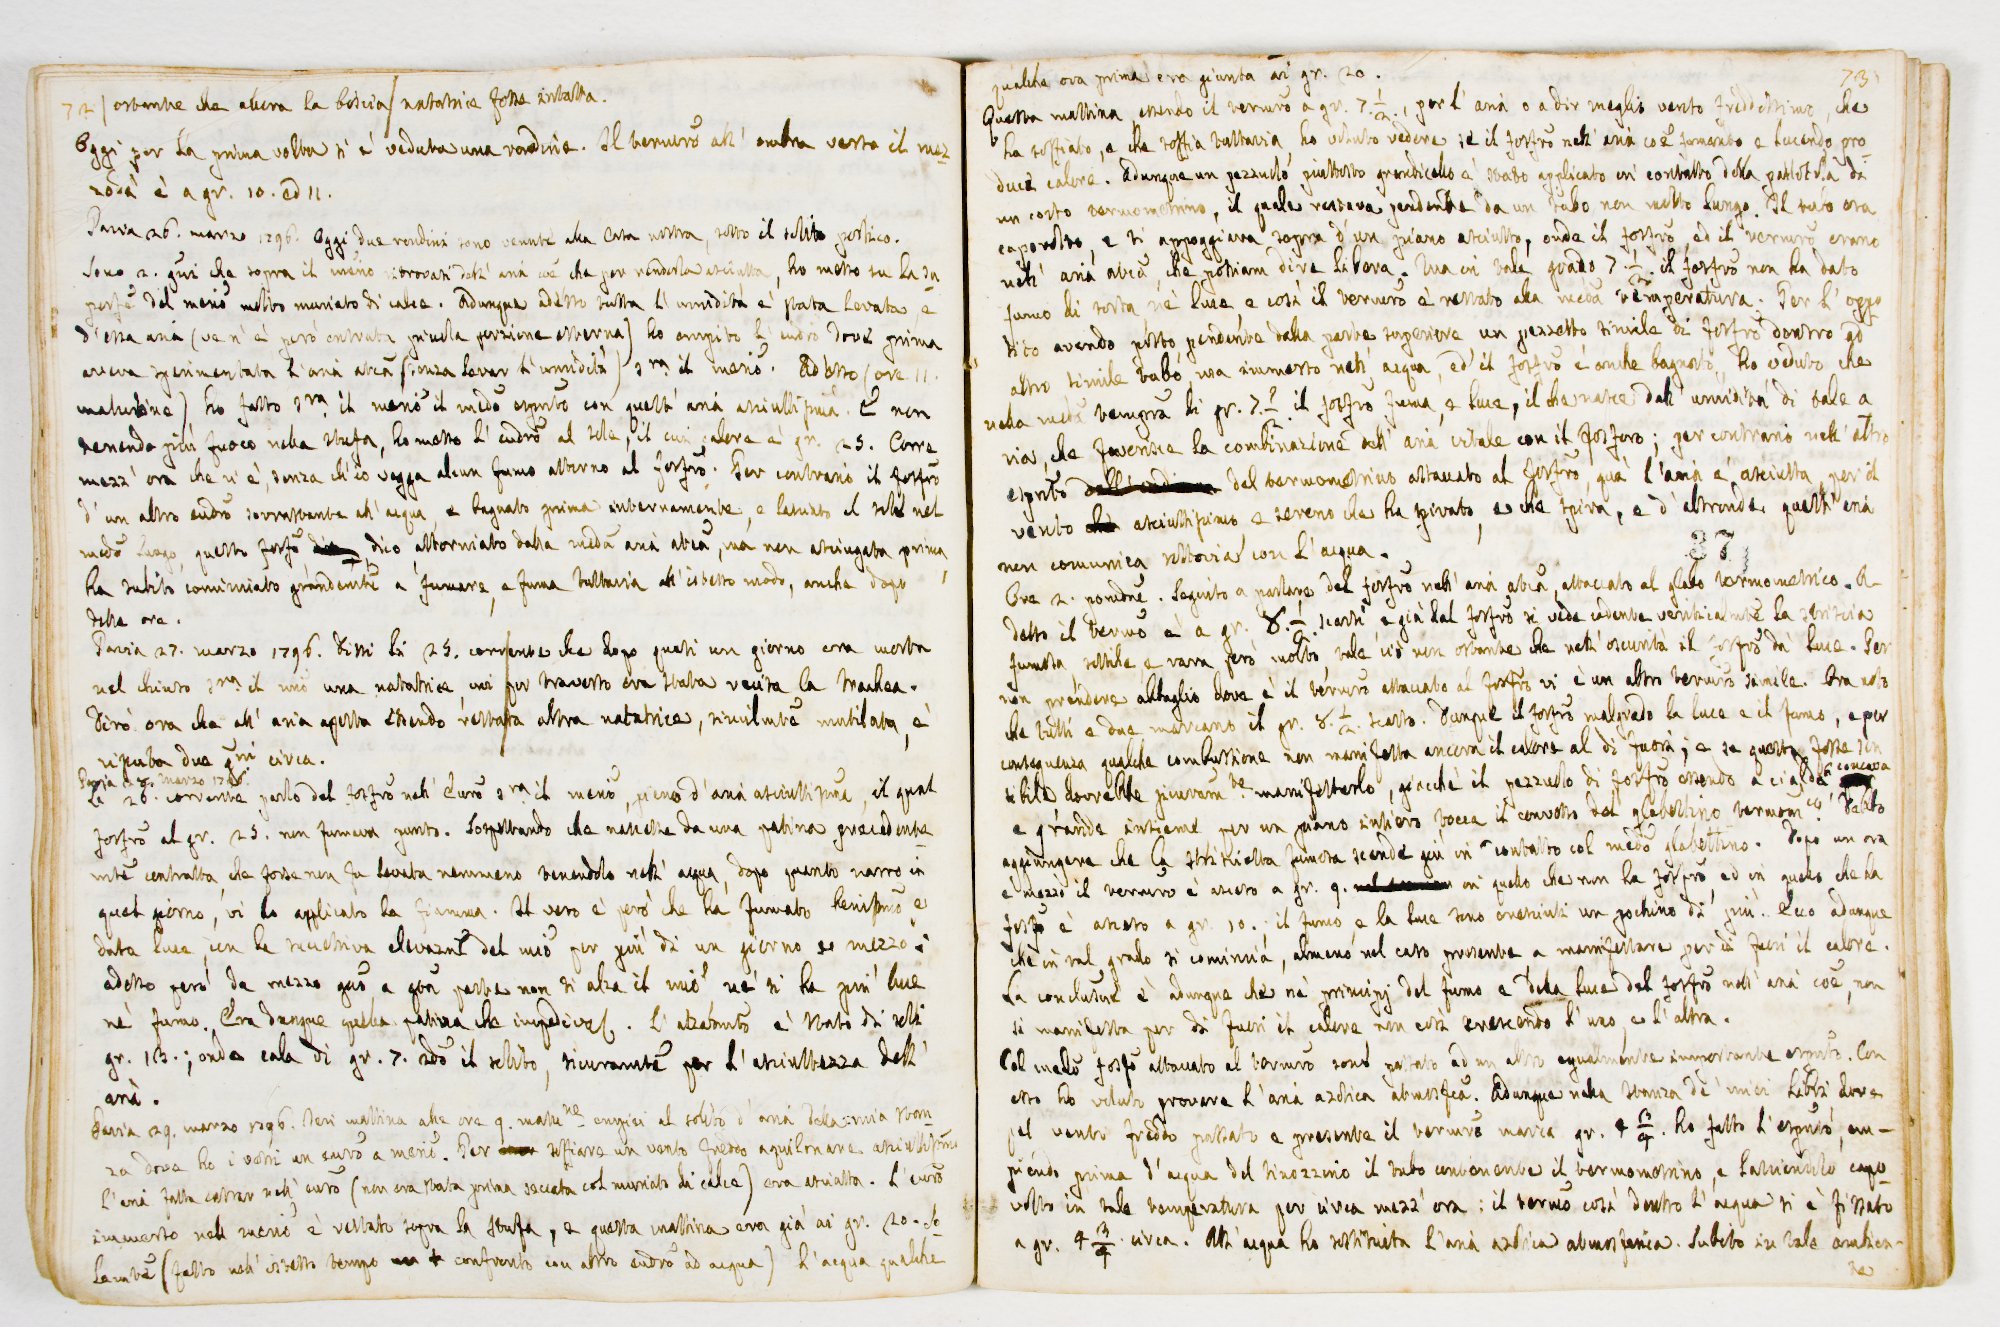 72 ostante che abbia la boccia natatrice fosse intatta.
Oggi per la prima volta si è veduta una rondine. Il termrõ all' ombra verso il mez
zodì è a gr. 10. ed 11.
Pavia 26. marzo 1796. Oggi due rondini sono venute alla Casa nostra, sotto il solito portico.
Sono 2. gñi che sopra il merõ ritrovasi dell' aria coẽ che per renderla asciutta, ho messo su la su
perfẽ del merõ molto muriato di calce. Adunque adesso tutta l' umidità è stata levata, e
d' essa aria (ve n' è però entrata piccola porzione esterna) ho empito l' eudrõ dove prima
aveva sperimentata l' aria atcã (senza levar l' umidità) sra il merõ. Adesso (ore 11.
mattutine) ho fatto sra il merõ il medõ esprtõ con quest' aria asciuttissima. E non
tenendo più fuoco nella stufa, ho messo l' eudrõ al sole, il cui calore è gr. 25. Corre
mezz' ora che vi è, senza ch' io vegga alcun fumo attorno al fosfrõ. Per contrario il fosfrõ
d' un altro eudrõ sovrastante all' acqua, e bagnato prima internamente, e lasciato al sole nel
medõ luogo, questo fosfrõ dico attorniato dalla medã aria atcã, ma non asciugata prima,
ha subito cominciato grandemtẽ a fumare, e fuma tuttavia all' istesso modo, anche dopo
sette ore.
Pavia 27. marzo 1796. Dissi li 25. corrente che dopo quasi un giorno era morta
nel chiuso sra il merõ una natatrice cui per traverso era stata recisa la trachea.
Dirò ora che all' aria aperta essendo restata altra natatrice, similmtẽ mutilata, è
vissuta due gñi circa.
Pavia 28. marzo 1796.
Li 26. corrente parlo del fosfrõ nell' eurõ sra il merõ, pieno d' aria asciuttissima, il qual
fosfrõ al gr. 25. non fumava punto. Sospettando che nascesse da una patina precedente
mtẽ contratta, che forse non fu levata nemmeno tenendolo nell' acqua, dopo quanto narro in
quel giorno, vi ho applicato la fiamma. Il vero è però che ha fumato benissimo e
data luce, con la successiva elevaznẽ del merõ per più di un giorno e mezzo:
adesso però da mezzo gnõ a qũta parte non si alza il merõ né si ha più luce
né fumo. Era dunque quella patina che impediva. L' alzamtõ è stato di soli
gr. 13.; onde cala di gr. 7. sdõ il solito, sicuramtẽ per l' asciuttezza dell'
aria.
Pavia 29. marzo 1796. Ieri mattina alle ore 9. mattne empiei al solito d' aria della mia stan
za dove ho i vetri un eurõ a merõ. Per soffiare un vento freddo aquilonare asciuttissimo
l' aria fatta entrar nell' eurõ (non era stata prima seccata col muriato di calce) era asciutta. L' eurõ
immerso nel merõ è restato sopra la stufa, e questa mattina era già ai gr. 20. So
lamtẽ (fatto nell' istesso tempo confronto con altro eudrõ ad acqua) l' acqua qualche
73
qualche ora prima era giunta ai gr. 20.
Questa mattina, essendo il termrõ a gr. 7. 1/2., per l' aria o a dir meglio vento freddissimo, che
ha soffiato, e che soffia tuttavia ho voluto vedere se il fosfrõ nell' aria coẽ fumando e lucendo pro
duca calore. Adunque un pezzuolo piuttosto grandicello è stato applicato in contatto della pallottola di
un corto termometrino, il quale restava pendente da un tubo non molto lungo. Il tubo era
capovolto, e si appoggiava sopra d' un piano asciutto, onde il fosfrõ, ed il termrõ erano
nell' aria atcã, che potriam dire libera. Ma in tale grado 7. 1/2. il fosfrõ non ha dato
fumo di sorta né luce, e così il termrõ è restato alla medã temperatura. Per l' oppo
sito avendo posto pendente dalla parte superiore un pezzetto simile di fosfrõ dentro ad
altro simile tubo, ma immerso nell' acqua, ed il fosfrõ è anche bagnato, ho veduto che
nella medã tempra di gr. 7. 1/2 il fosfrõ fuma, e luce, il che nasce dall' umidità di tale a
ria, che favorisce la combinazione dell' aria vitale con il fosforo; per contrario nell' altro
esprtõ del termometrino attaccato al fosfrõ, qua l' aria è asciutta, per il
vento asciuttissimo e sereno che ha spirato, e che spira, e d' altronde quest' aria
non comunica tuttavia con l' acqua.
37
Ore 2. pomdnẽ. Seguito a parlare del fosfrõ nell' aria atcã, attaccato al globo termometrico. A-
desso il termrõ è a gr. 8. 1/2. scarsi e già dal fosfrõ si vede cadente verticalmtẽ la striscia
fumosa sottile e rara però molto, tale ciò non ostante che nell' oscurità il fosfrõ dà luce. Per
non prendere abbaglio dove è il termrõ attaccato al fosfrõ vi è un altro termrõ simile. Ora noto
che tutti e due marcano il gr. 8. 1/2. scarso. Dunque il fosfrõ malgrado la luce e il fumo, e per
conseguenza qualche combustione non manifesta ancora il calore al di fuori; e se questo fosse sen
sibile dovrebbe sicuramte manifestarlo, giacché il pezzuolo di fosfrõ essendo a cialda concava
e grande insieme per un piano intiero tocca il convesso del globettino termomco. Debbo
aggiungere che la strisciotta fumosa scende giù in contatto col medõ globettino. Dopo un ora
e mezzo il termrõ è asceso a gr. 9. in quello che non ha fosfrõ, ed in quello che ha
fosfrõ è asceso a gr. 10.; il fumo e la luce sono cresciuti un pochino di più. Ecco adunque
che in tal grado si comincia, almeno nel caso presente a manifestare per di fuori il calore.
La conclusnẽ è adunque che ne' principj del fumo e della luce del fosfrõ nell' aria coẽ, non
si manifesta per di fuori il calore non così crescendo l' uno, e l' altra.
Col medõ fosfrõ attaccato al termrõ sono passato ad un altro egualmente importante esprtõ. Con
esso ho voluto provare l' aria azotica atmosfcã. Adunque nella stanza de' miei libri dove
pel vento freddo passato e presente il termrõ marca gr. 4 3/4. ho fatto l' esprtõ, em-
piendo prima d' acqua del tinozzino il tubo contenente il termometrino, e lasciandolo capo
volto in tale temperatura per circa mezz' ora: il termrõ così dentro l' acqua si è fissato
a gr. 4 3/4. circa. All' acqua ho sostituita l' aria azotica atmosferica. Subito in tale ambien-
te